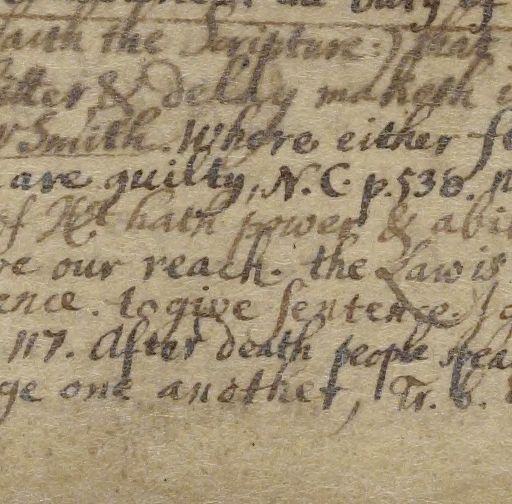 saith the Scripture.) that
& delay maketh
Smith. Where either
are guilty, N.C. p. 538.
of Kt hath power & abi
re our reach. the Law is
ence. to give sentence.)
117. After death people
ge one another, Tr. 6.